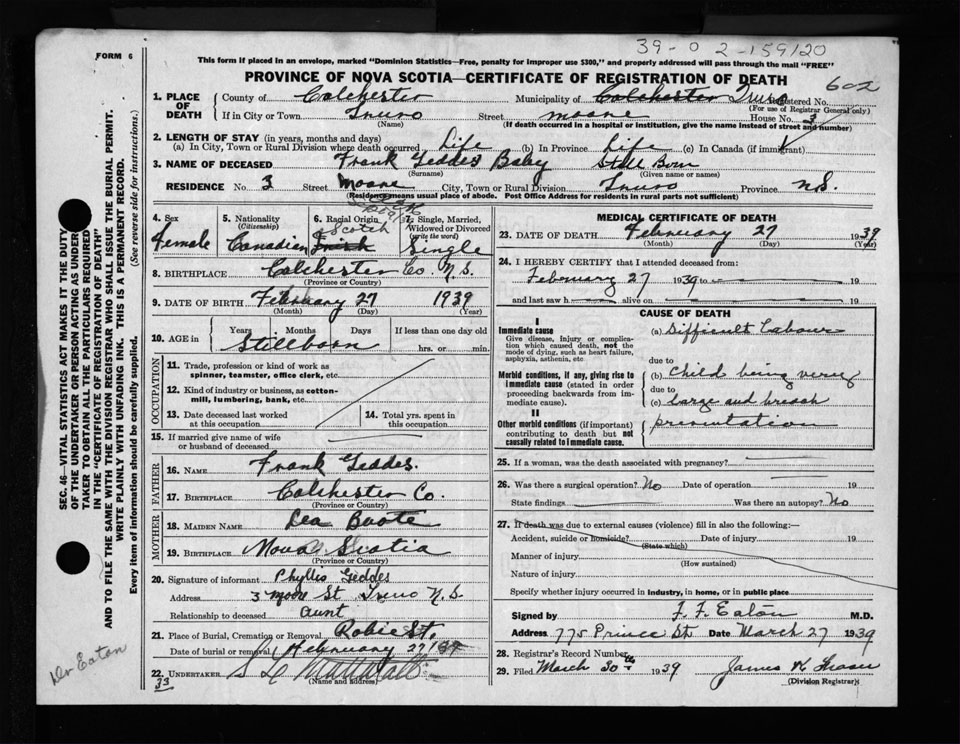 39-0 2-159120
FORM 6
This form if placed in an envelope, marked "Dominion Statistics—Free, penalty for improper use $300," and properly addressed will pass through the mail "FREE"
PROVINCE OF NOVA SCOTIA—CERTIFICATE OF REGISTRATION OF DEATH
602
1. PLACE OF DEATH
County of Colchester Municipality of Colchester Truro Registered No.
(For use of Registrar General only)
If in City or Town Truro Street Moore House No. 3
(Name) (If death occurred in a hospital or institution, give the name instead of street and number)
2. LENGTH OF STAY (in years, months and days)
(a) In City, Town or Rural Division where death occurred Life (b) In Province Life (c) In Canada (if immigrant)
3. NAME OF DECEASED Frank Geddes Baby Still Born
(Surname) (Given name or names)
RESIDENCE No. 3 Street Moore City, Town or Rural Division Truro Province N.S.
(Residence means usual place of abode. Post Office Address for residents in rural parts not sufficient)
4. Sex Female
5. Nationality (Citizenship) Canadian
6. Racial Origin Scotch Irish
7. Single, Married, Widowed or Divorced (write the word) Single
8. BIRTHPLACE Colchester Co. N.S.
(Province or Country)
9. DATE OF BIRTH February 27 1939
(Month) (Day) (Year)
10. AGE in Years Months Days If less than one day old
Stillborn hrs. or min.
OCCUPATION
11. Trade, profession or kind of work as spinner, teamster, office clerk, etc.
12. Kind of industry or business, as cotton-mill, lumbering, bank, etc.
13. Date deceased last worked at this occupation
14. Total yrs. spent in this occupation
15. If married give name of wife or husband of deceased
FATHER
16. NAME Frank Geddes.
17. BIRTHPLACE Colchester Co.
(Province or Country)
MOTHER
18. MAIDEN NAME Lea Boote
19. BIRTHPLACE Nova Scotia
(Province or Country)
20. Signature of informant Phyllis Geddes
Address 3 Moore St. Truro N.S
Relationship to deceased aunt
21. Place of Burial, Cremation or Removal Robie St.
Date of burial or removal February 27/39
22. UNDERTAKER
(Name and address)
33
MEDICAL CERTIFICATE OF DEATH
23. DATE OF DEATH February 27 1939
(Month) (Day) (Year)
24. I HEREBY CERTIFY that I attended deceased from:
February 27 1939 to 19
and last saw h alive on 19
CAUSE OF DEATH
I
Immediate cause
Give disease, injury or complication which caused death, not the mode of dying, such as heart failure, asphyxia, asthenia, etc
(a) Difficult Labour
due to
Morbid conditions, if any, giving rise to immediate cause (stated in order proceeding backwards from immediate cause).
(b) Child being very
due to
(c) Large and breach
II
Other morbid conditions (if important) contributing to death but not causally related to immediate cause.
presentation
25. If a woman, was the death associated with pregnancy?
26. Was there a surgical operation? No Date of operation 19
State findings Was there an autopsy? No
27. If death was due to external causes (violence) fill in also the following:—
Accident, suicide or homicide? Date of injury 19
(State which)
Manner of injury
(How sustained)
Nature of injury
Specify whether injury occurred in industry, in home, or in public place
Signed by F. F. Eaton M.D.
Address 775 Prince St Date March 27 1939
28. Registrar's Record Number
29. Filed March 30th 1939 James K Fraser
(Division Registrar)
SEC. 46—VITAL STATISTICS ACT MAKES IT THE DUTY
OF THE UNDERTAKER OR PERSON ACTING AS UNDER-
TAKER TO OBTAIN ALL THE PARTICULARS REQUIRED
IN THE "CERTIFICATE OF REGISTRATION OF DEATH"
AND TO FILE THE SAME WITH THE DIVISION REGISTRAR WHO SHALL ISSUE THE BURIAL PERMIT.
WRITE PLAINLY WITH UNFADING INK. THIS IS A PERMANENT RECORD.
Every item of information should be carefully supplied. (See reverse side for instructions.)
Dr Eaton